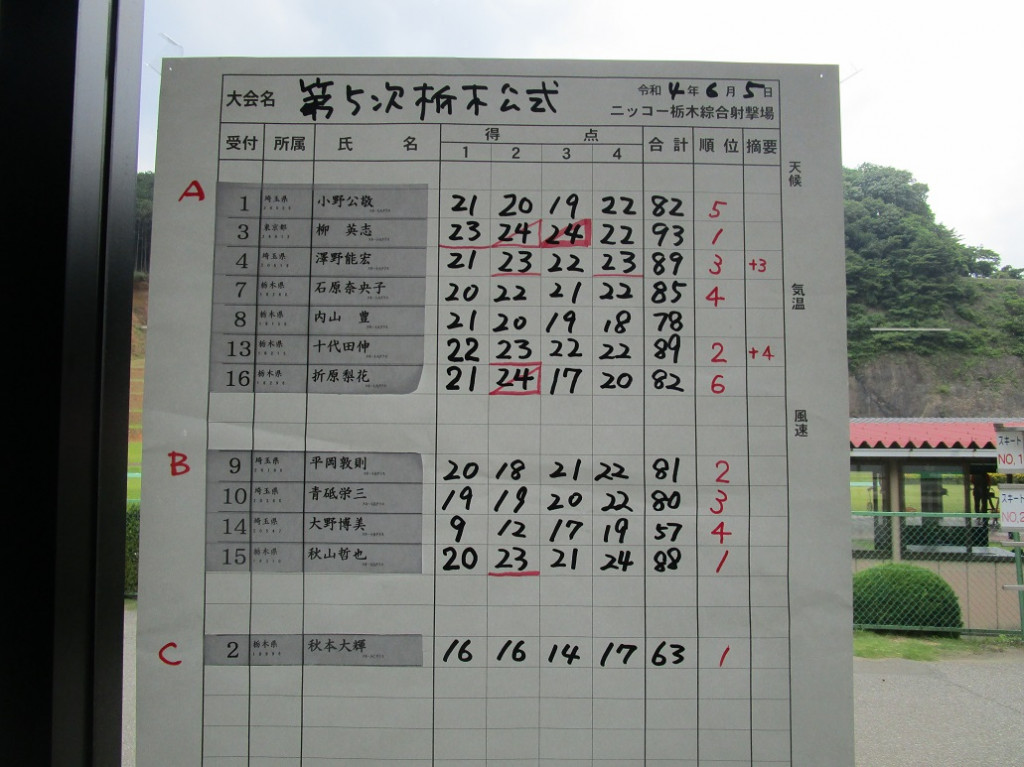 大会名 第5次栃木公式 令和 4 年 6 月 5 日
ニッコー栃木綜合射撃場
受付 所属 氏 名 得 点 合 計 順 位 摘要
1 2 3 4
天候
A
1 埼玉県 小野公敬 21 20 19 22 82 5
3 東京都 柳 英志 23 24 24 22 93 1
4 埼玉県 澤野能宏 21 23 22 23 89 3 +3
7 栃木県 石原奈央子 20 22 21 22 85 4
気温
8 栃木県 内山 豊 21 20 19 18 78
13 栃木県 十代田伸 22 23 22 22 89 2 +4
16 栃木県 折原梨花 21 24 17 20 82 6
風速
B
9 埼玉県 平岡敦則 20 18 21 22 81 2
10 埼玉県 青砥栄三 19 19 20 22 80 3
14 埼玉県 大野博美 9 12 17 19 57 4
15 栃木県 秋山哲也 20 23 21 24 88 1
C
2 栃木県 秋本大輝 16 16 14 17 63 1
スキート
NO.1
スキート
NO.2